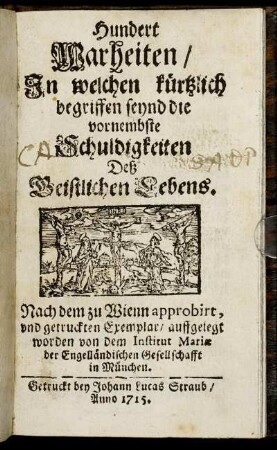 Hundert
Warheiten /
In welchen kürtzlich
begriffen seynd die
vornembste
Schuldigkeiten
Deß
Geistlichen Lebens.
Nach dem zu Wienn approbirt,
vnd getruckten Exemplar / auffgelegt
worden von dem Institut Mariæ
der Engelländischen Gesellschafft
in München.
Getruckt bey Johann Lucas Straub /
Anno 1715.